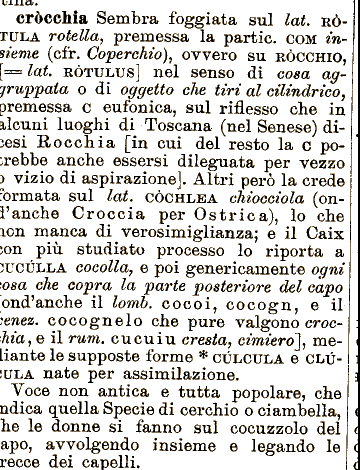 cròcchia Sembra foggiata sul lat. RÒ-
TULA rotella, premessa la partic. COM in-
sieme (cfr. Coperchio), ovvero su RÒCCHIO,
[= lat. RÒTULUS] nel senso di cosa ag-
gruppata o di oggetto che tiri al cilindrico,
premessa C eufonica, sul riflesso che in
alcuni luoghi di Toscana (nel Senese) di-
cesi Rocchia [in cui del resto la C po-
trebbe anche essersi dileguata per vezzo
o vizio di aspirazione]. Altri però la crede
formata sul lat. CÒCHLEA chiocciola (on-
d'anche Croccia per Ostrica), lo che
non manca di verosimiglianza; e il Caix
con più studiato processo lo riporta a
CUCÚLLA cocolla, e poi genericamente ogni
cosa che copra la parte posteriore del capo
[ond'anche il lomb. cocoi, cocogn, e il
venez. cocognelo che pure valgono croc-
chia, e il rum. cucuiu cresta, cimiero], me-
diante le supposte forme * CÚLCULA e CLÚ-
CULA nate per assimilazione.
Voce non antica e tutta popolare, che
indica quella Specie di cerchio o ciambella,
che le donne si fanno sul cocuzzolo del
capo, avvolgendo insieme e legando le
trecce dei capelli.